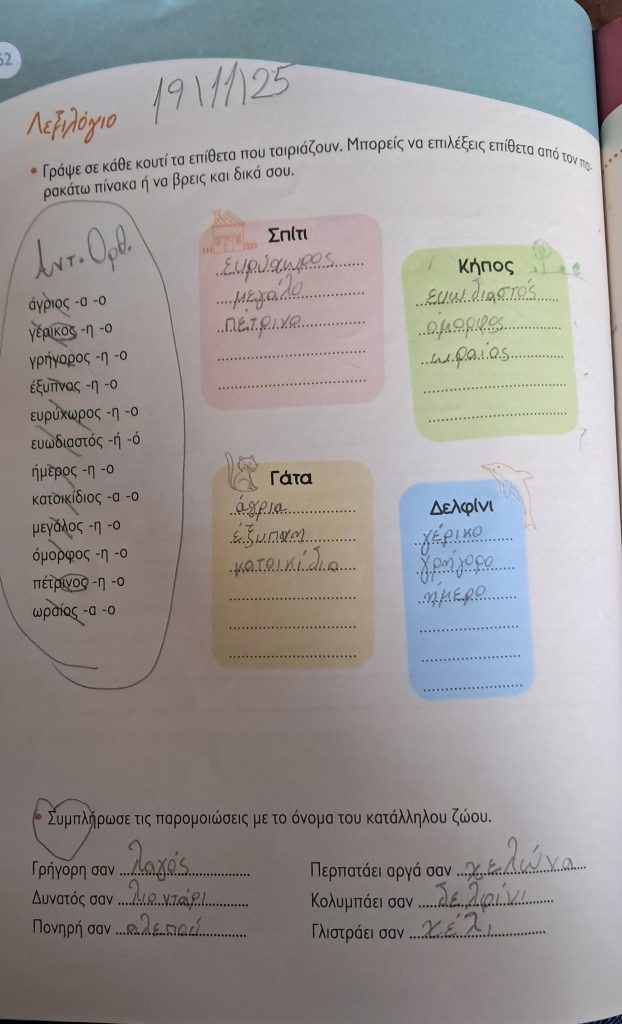 62
19\11\25
Λεξιλόγιο
• Γράψε σε κάθε κουτί τα επίθετα που ταιριάζουν. Μπορείς να επιλέξεις επίθετα από τον πα-
ρακάτω πίνακα ή να βρεις και δικά σου.
Αντ. Ορθ.
άγριος -α -ο
γέρικος -η -ο
γρήγορος -η -ο
έξυπνος -η -ο
ευρύχωρος -η -ο
ευωδιαστός -ή -ό
ήμερος -η -ο
κατοικίδιος -α -ο
μεγάλος -η -ο
όμορφος -η -ο
πέτρινος -η -ο
ωραίος -α -ο
Σπίτι
ευρύχωρος
μεγάλο
πέτρινο
Κήπος
ευωδιαστός
όμορφος
ωραίος
Γάτα
άγρια
έξυπνη
κατοικίδια
Δελφίνι
γέρικο
γρήγορο
ήμερο
• Συμπλήρωσε τις παρομοιώσεις με το όνομα του κατάλληλου ζώου.
Γρήγορη σαν λαγός
Δυνατός σαν λιοντάρι
Πονηρή σαν αλεπού
Περπατάει αργά σαν χελώνα
Κολυμπάει σαν δελφίνι
Γλιστράει σαν χέλι